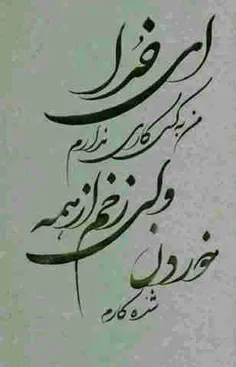 ای خدا
من به کسی کاری ندارم
ولی زخم از همه
خوردن
شده کارم